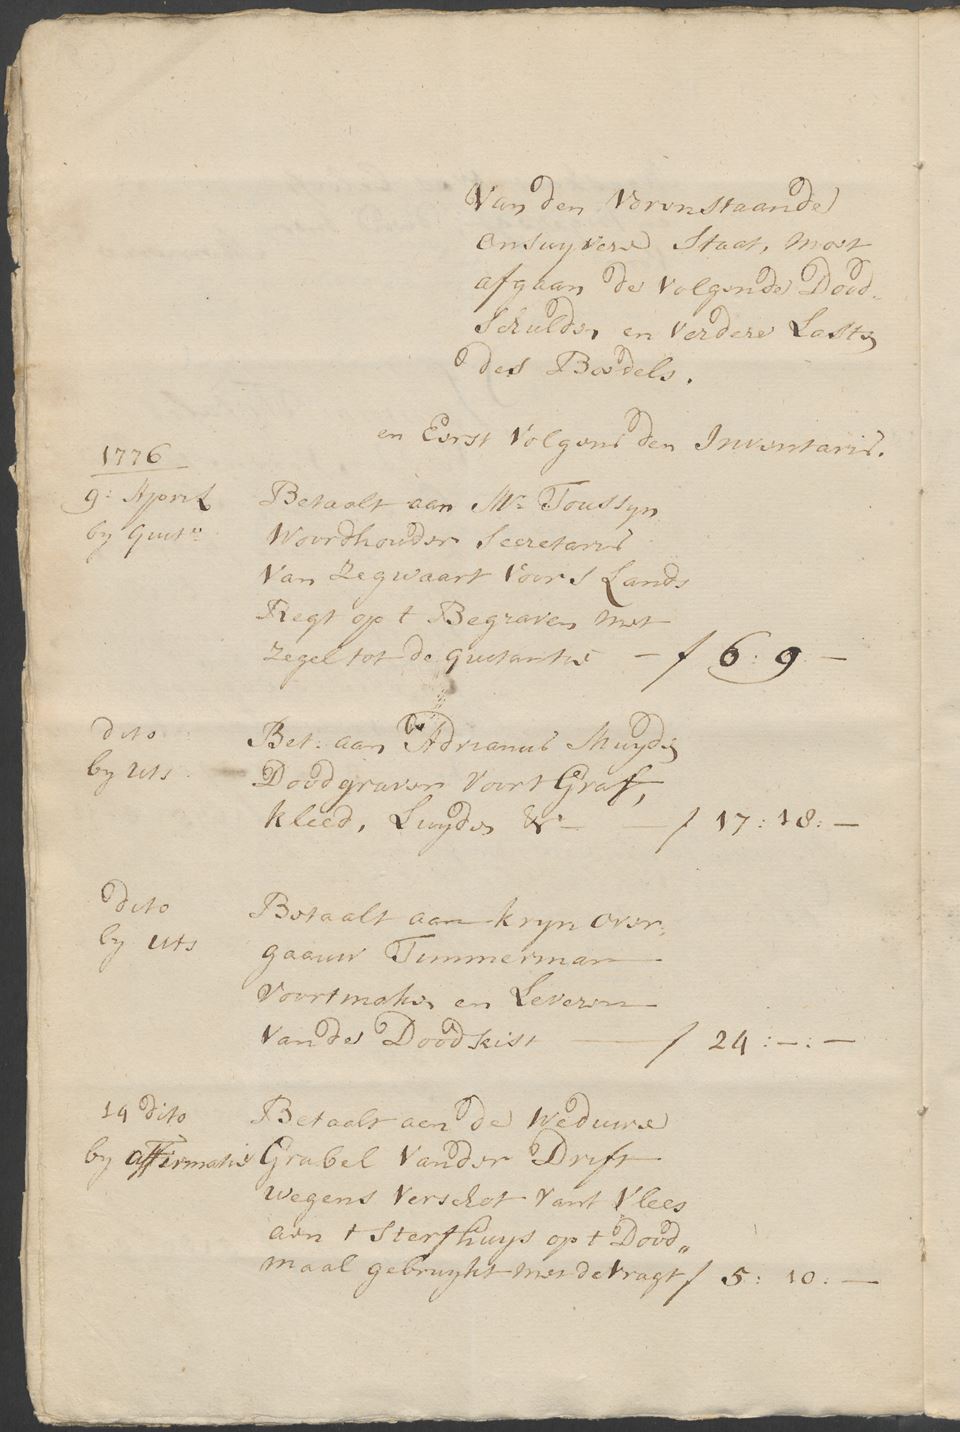 Van den Vorenstaande
onsuyvere Staat, moet
afgaan de volgende Dood-
Schulden en verdere Lasten
des Boedels.
en Eerst volgens den Inventaris.
1776
9: April
by quitt:
Betaalt aan Mr: Toussyn
Woordhouder Secretaris
van Zegwaart voor s Lands
Regt op t Begraven met
zegel tot de quitantie — f 6: 9 —
dito
by uts
Bet: aan Adrianus Muyden
Doodgraver voort Graf,
kleed, Luyden &c — — f 17: 18: —
dito
by uts
Betaalt aan Kryn Over-
gaauw Timmerman —
voort maken en Leveren —
van des Doodkist — f 24: —: —
14 dito
by affirmatie
Betaalt aen de Weduwe
Grabel vander Drift —
wegens verschot vant vlees
aen t Sterfhuys op t Dood„
maal gebruykt met de vragt f 5: 10: —